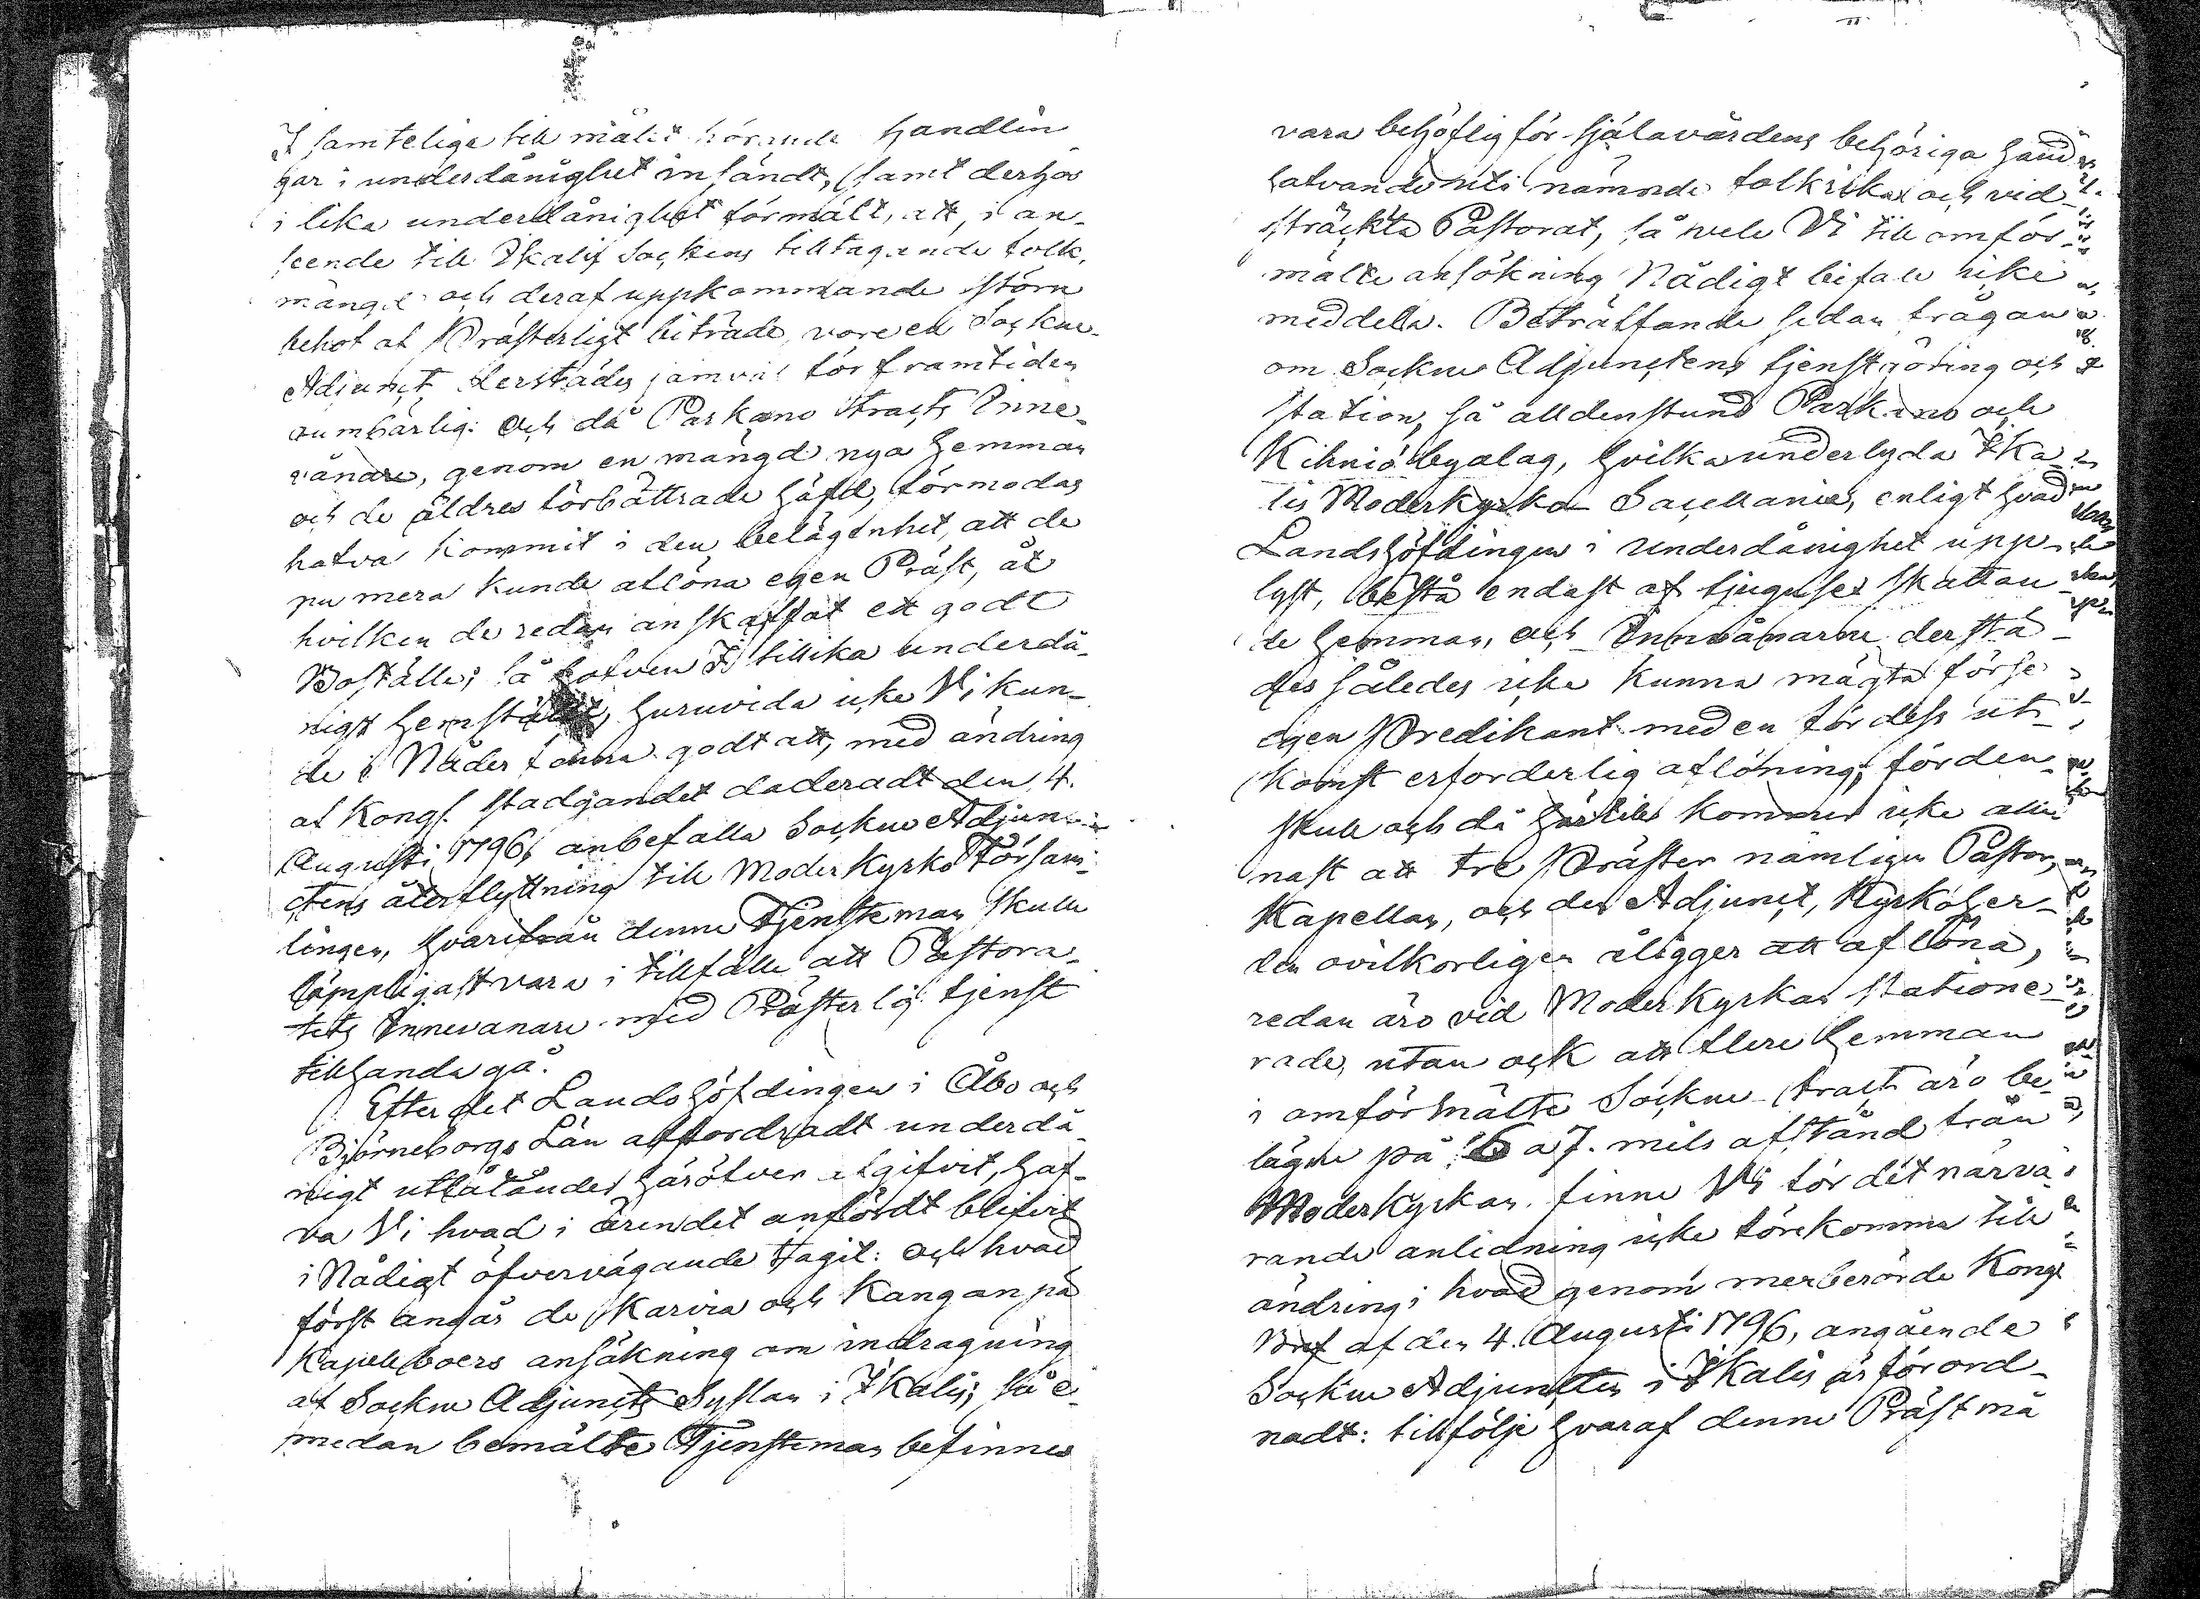 I samtelige till målet hörande handlin
gar i underdånighet insändt, samt derhos
i lika underdånighet förmält, att, i an-
seende till Ikalis Sockens tilltagande folk,
mängd och deraf uppkommande större
behof af Prästerligt biträde, vore en Sockne-
Adjunct derstädes jämväl för framtiden
oumbärlig: och då Parkano Tracts Inne-
vånare, genom en mängd nya hemman
och de äldres förbättrade häfd, förmodas
hafva kommit i den belägenhet, att de
nu mera kunde aflöna egen Präst, åt
hvilken de redan anskaffat ett godt
Boställe; så hafven I tillika underdå-
nigst hemstält, huruvida icke Vi kun-
de i Nåder finna godt att, med ändring
af Kongl. stadgandet daderadt den 4.
Augusti 1796, anbefalla Sockne Adjun-
ctens återflyttning till Moderkyrko Försam-
lingen, hvarifrån denne Tjensteman skulle
lämpligast vara i tillfälle att Pastora-
tets Innevanare med Prästerlig tjenst
tillhanda gå.
Efter det Landshöfdingen i Åbo och
Björneborgs Län affordradt underdå
nigt utlåtande häröfver afgifvit, haf-
va Vi hvad i ärendet anfördt blifvit
i Nådigt öfvervägande tagit: och hvad
först angår de Karvia och Kanganpä
Kapellboers ansökning om indragning
af Sockne Adjuncts Syslan i Ikalis; så e-
medan bemälte Tjensteman befinnes
vara behöflig för själavårdens behöriga hand
hafvande uti nämnde folkrika och vid-
sträckta Pastorat, så vele Vi till omför-
mälte ansökning Nådigt bifall icke
meddela. Beträffande sedan frågan
om Sockne Adjunctens tjenstgöring och
station, så alldenstund Parkano och
Kihniö byalag, hvilka underlyda Ika
lis Moderkyrka Sacellanie, enligt hvad
Landshöfdingen i underdånighet upp-
lyst, bestå endast af tjugusex skattan
de hemman, och Innevånarne derstä-
des således icke kunna mägta förse
egen Predikant med en för dess ut-
komst erforderlig aflöning; förden-
skull och då härtill kommer icke allena
nast att tre Präster nämligen Pastor,
Kapellan, och den Adjunct, Kyrkoher-
den ovilkorligen åligger att aflöna,
redan äro vid Moderkyrkan statione-
rade, utan ock att flere hemman
i omförmälte Sockne tract äro be-
lägne på 6 a 7. mils afstånd från
Moderkyrkan, finne Vi för det närva
rande anledning icke förekomma till
ändring i hvad genom merberörde Kongl
Bref af den 4. Augusti 1796, angående
Sockne Adjuncten i Ikalis är förord-
nadt: tillfölje hvaraf denne Präst må